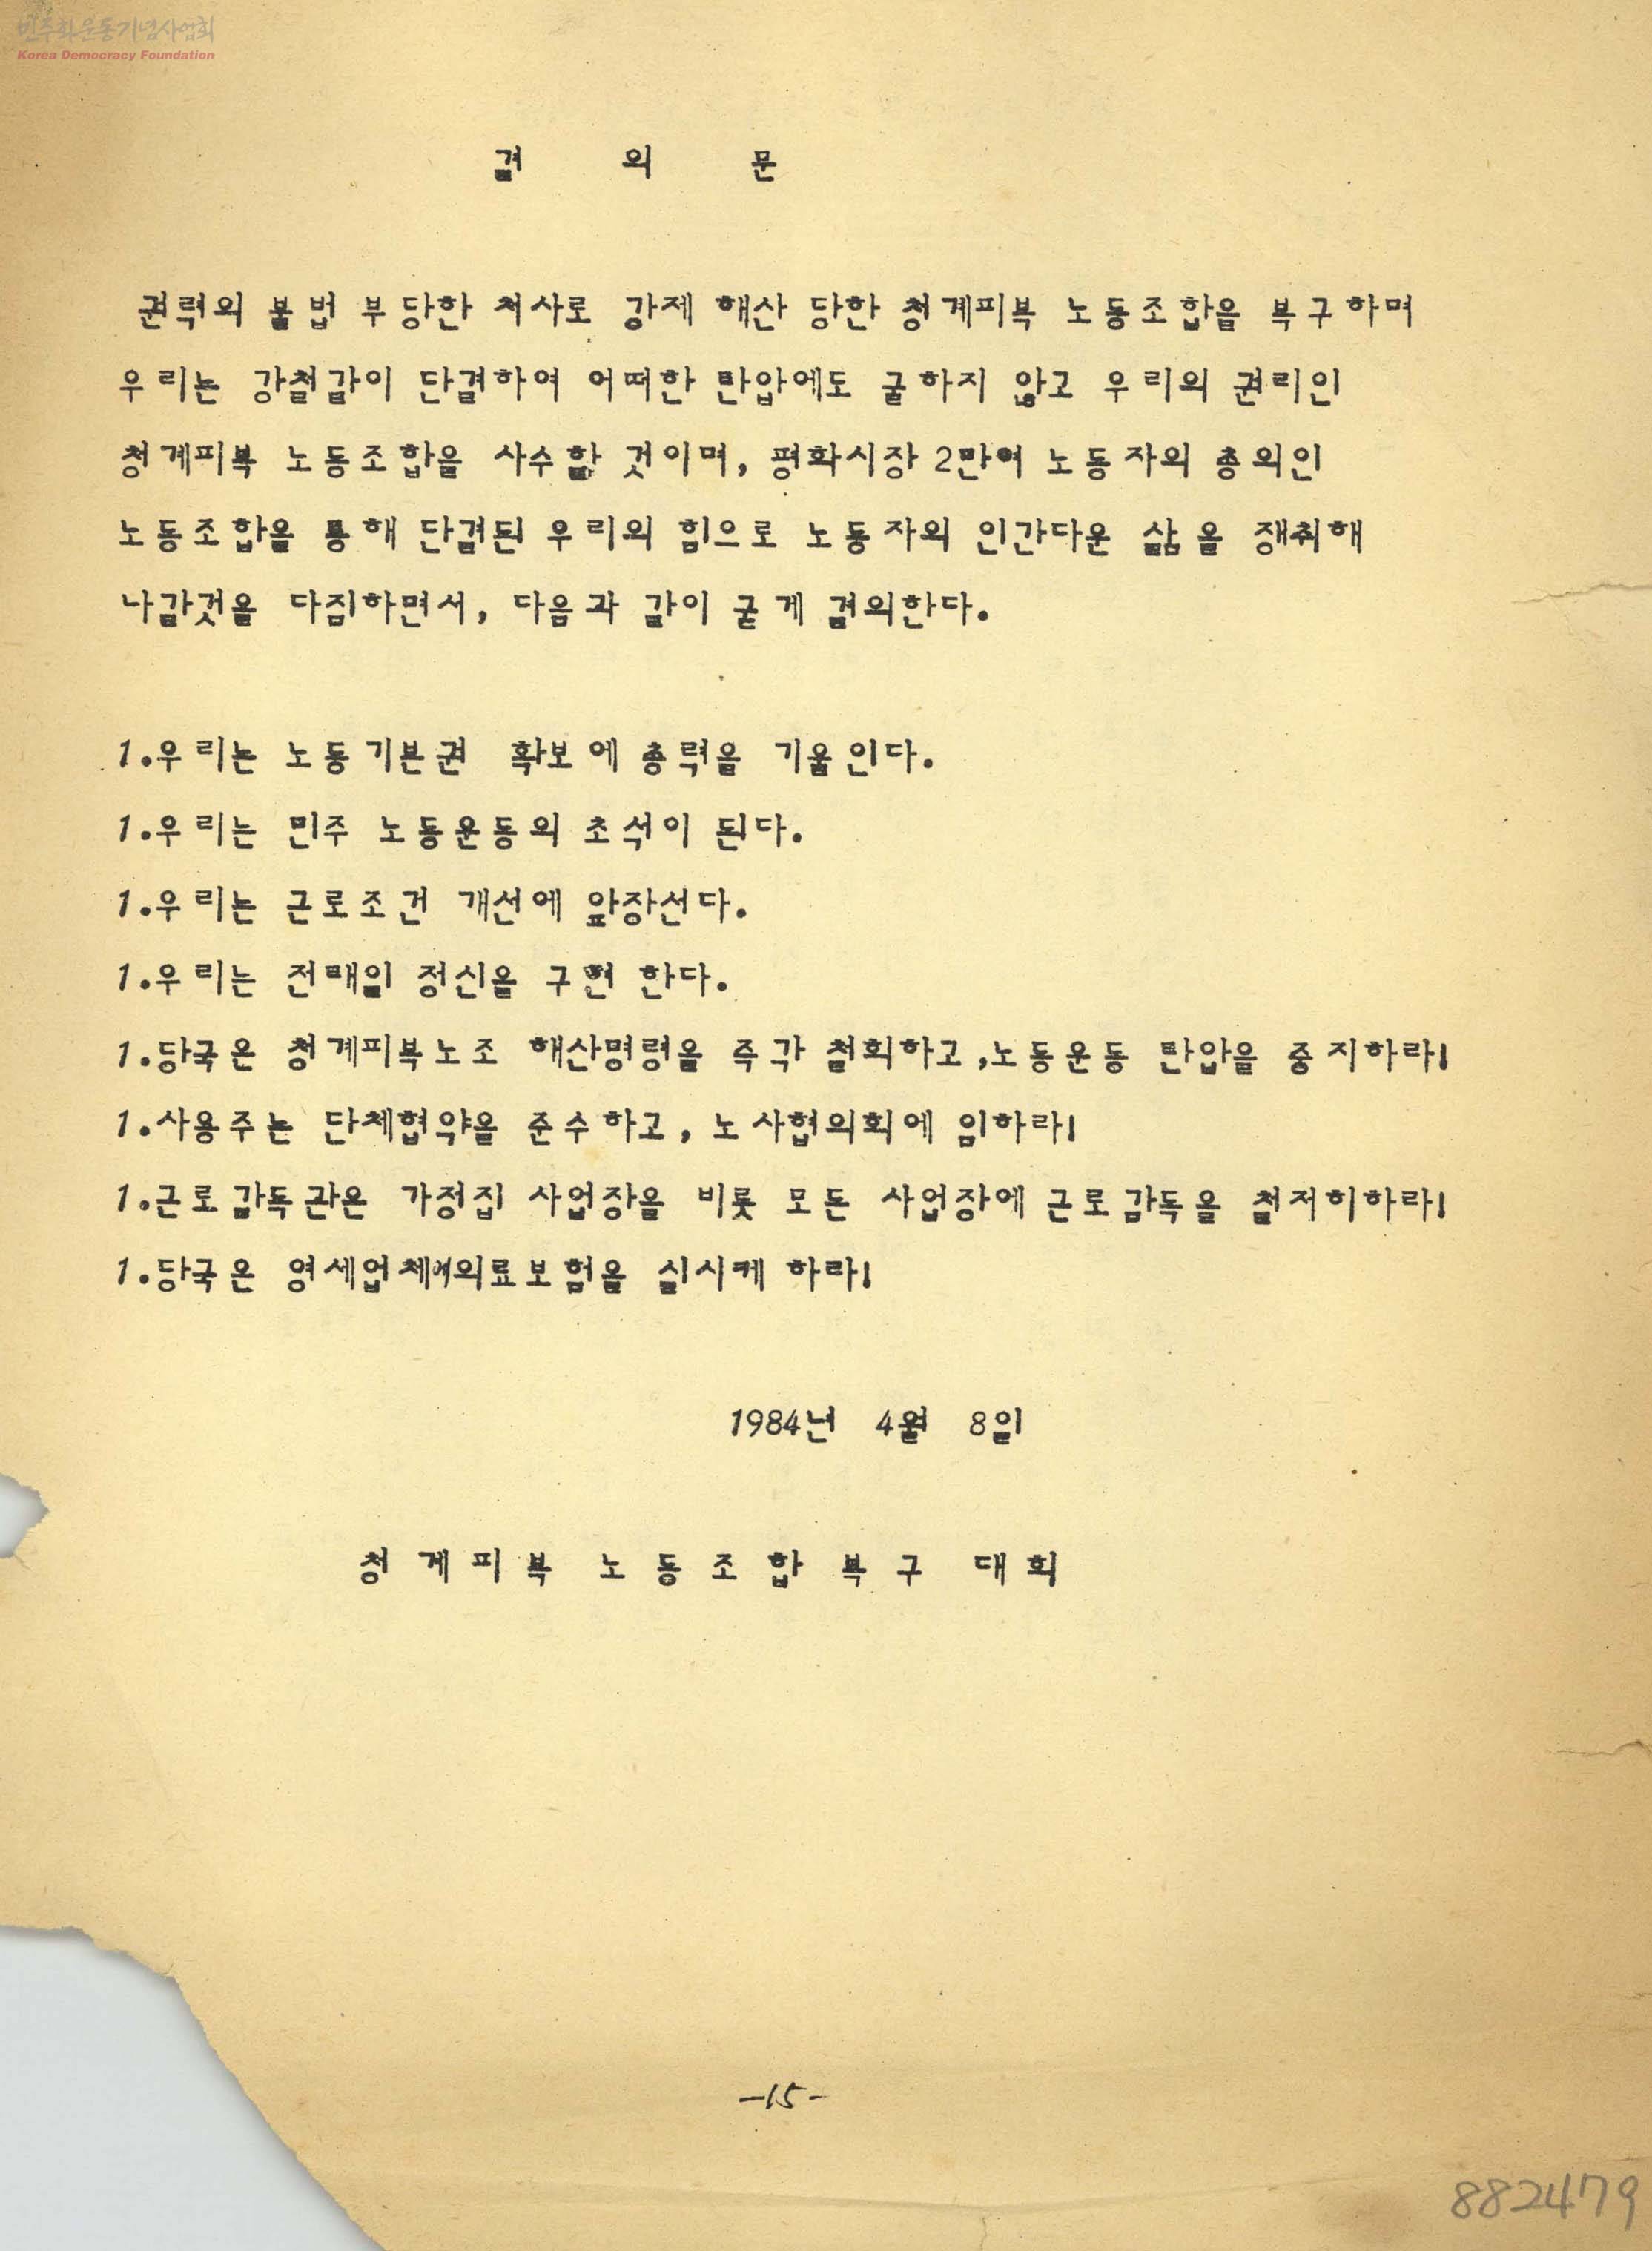 민주화운동기념사업회
Korea Democracy Foundation
결 의 문
권력의 불법 부당한 처사로 강제 해산 당한 청계피복 노동조합을 복구하며
우리는 강철같이 단결하여 어떠한 탄압에도 굴하지 않고 우리의 권리인
청계피복 노동조합을 사수할 것이며, 평화시장 2만여 노동자의 총의인
노동조합을 통해 단결된 우리의 힘으로 노동자의 인간다운 삶을 쟁취해
나갈것을 다짐하면서, 다음과 같이 굳게 결의한다.
1.우리는 노동기본권 확보에 총력을 기울인다.
1.우리는 민주 노동운동의 초석이 된다.
1.우리는 근로조건 개선에 앞장선다.
1.우리는 전태일 정신을 구현 한다.
1.당국은 청계피복노조 해산명령을 즉각 철회하고,노동운동 탄압을 중지하라!
1.사용주는 단체협약을 준수하고, 노사협의회에 임하라!
1.근로감독관은 가정집 사업장을 비롯 모든 사업장에 근로감독을 철저히하라!
1.당국은 영세업체에의료보험을 실시케 하라!
1984년 4월 8일
청계피복 노동조합복구 대회
-15-
882479